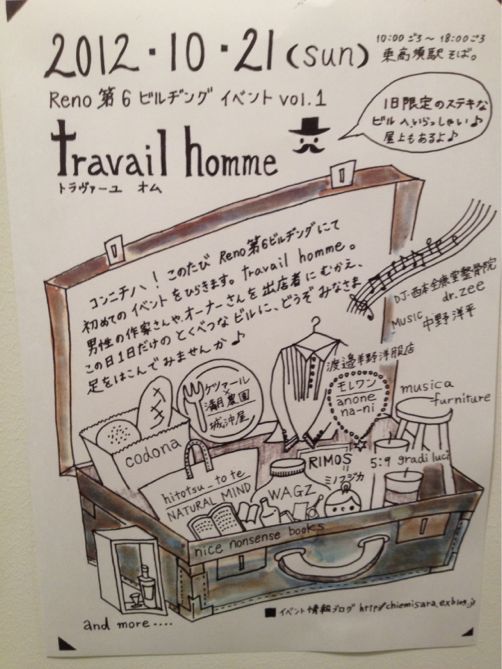 2012・10・21(sun)
10:00ごろ〜18:00ごろ
東高須駅そば。
Reno第6ビルヂング イベント vol.1
1日限定のステキな
ビルへいらっしゃい♪
屋上もあるよ♪
travail homme
トラヴァーユ オム
コンニチハ！このたび Reno第6ビルヂングにて
初めてのイベントをひらきます。travail homme。
男性の作家さんや、オーナーさんを出店者にむかえ、
この日1日だけのとくべつなビルに、どうぞみなさま
足をはこんでみませんか♪
DJ・西本全康堂整骨院
dr.zee
MUSIC 中野洋平
渡邉半野洋服店
モレワン
anone
na-ni
musica
furniture
ケツマール
×
満月農園
×
城沖屋
codona
hitotsu_to te
NATURAL MIND
WAGZ
RIMOS
ミノフジカ
5:9 gradi luci
nice nonsense books
and more・・・・
■イベント情報ブログ